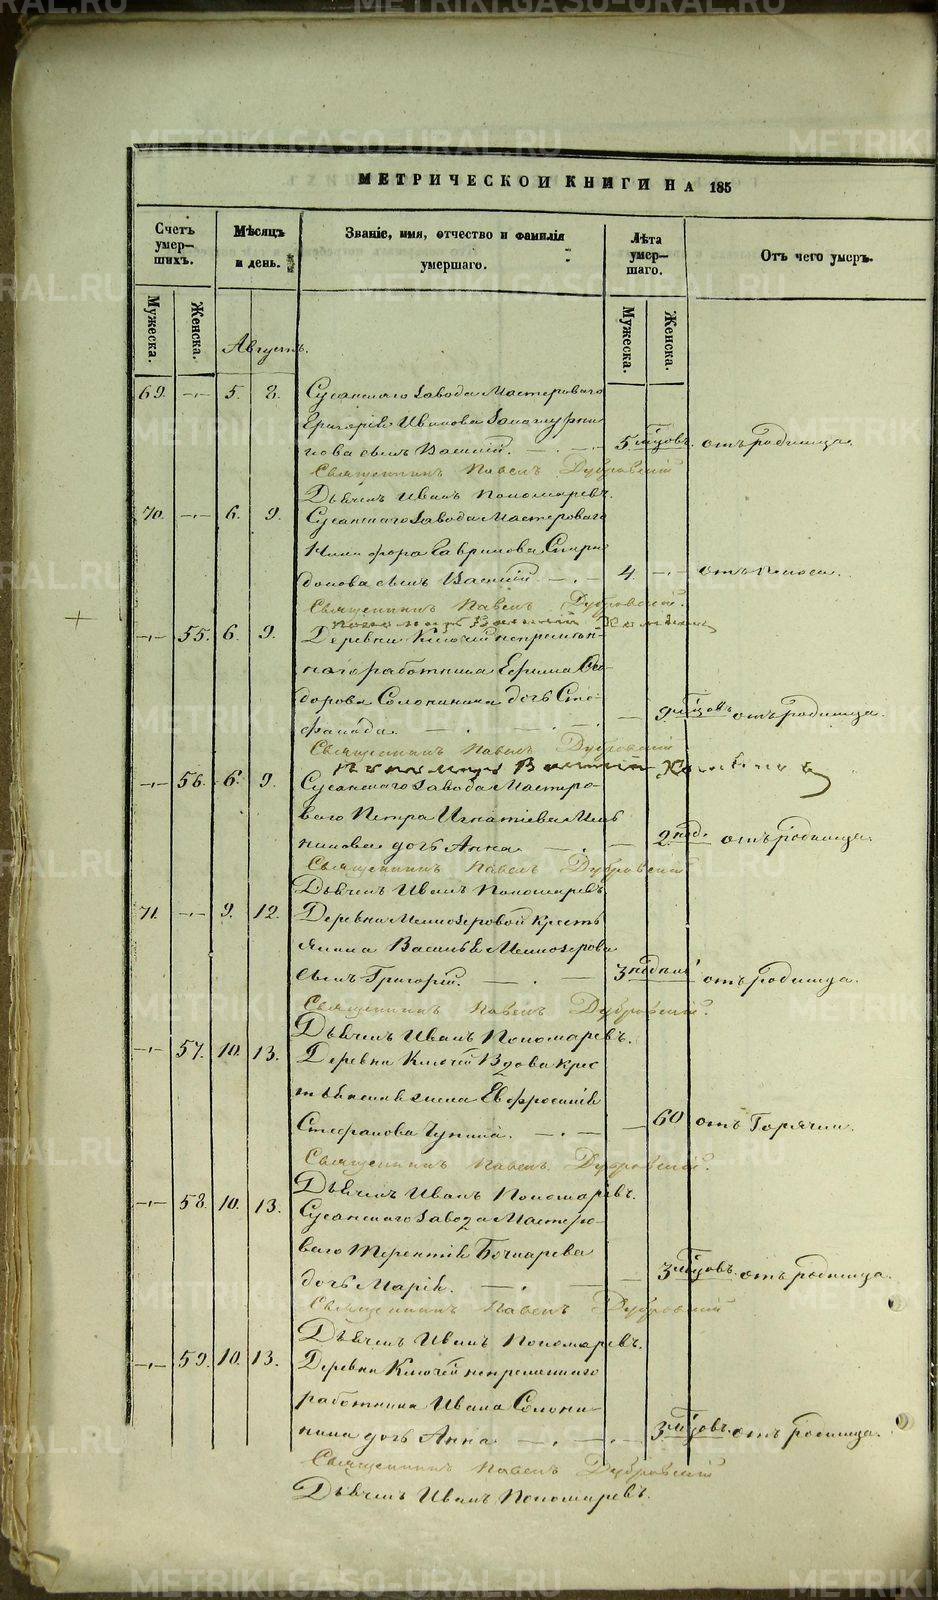 METRIKI.GASO-URAL.RU
МЕТРИЧЕСКОЙ КНИГИ НА 185
Счетъ умерших.
Мѣсяцъ и день.
Званіе, имя, отчество и фамилія умершаго.
Лѣта умершаго.
Отъ чего умеръ.
Мужеска.
Женска.
Мужеска.
Женска.
Августъ.
69. 5. 8. Сусанскаго завода Мастероваго
Григорія Иванова
сынъ Василій. 5 мѣсяцовъ. отъ родимца.
Священникъ Павелъ Дубровскій
Дьячекъ Иванъ Пономаревъ.
70. 6. 9. Сусанскаго завода Мастероваго
Никифора Гаврилова Спири
донова сынъ Василій 4. отъ поноса.
Священникъ Павелъ Дубровскій.
Пономарь Василій
55. 6. 9. Деревни Ключей непремѣн
наго работника Ефима Ѳео
дорова Солонинина дочь Сте
фанида. 9 мѣсяцовъ отъ родимца.
Священникъ Павелъ Дубровскій
Пономарь Василій
56. 6. 9. Сусанскаго завода Мастеро
ваго Петра Игнатіева Мель
никова дочь Анна 2 нед. отъ родимца.
Священникъ Павелъ Дубровскій
Дьячекъ Иванъ Пономаревъ
71. 9. 12. Деревни Мелкозеровой кресть
янина Василья Мелкозерова
сынъ Григорій. 3 отъ родимца.
Священникъ Павелъ Дубровскій.
Дьячекъ Иванъ Пономаревъ.
57. 10. 13. Деревни Ключей Вдова крес
тьянская жена Евфросинія
Стефанова 60 отъ Горячки.
Священникъ Павелъ Дубровскій.
Дьячекъ Иванъ Пономаревъ.
58. 10. 13. Сусанскаго завода Мастеро
ваго Терентія Бочкарева
дочь Марія. 3 мѣсяцовъ. отъ родимца.
Священникъ Павелъ Дубровскій
Дьячекъ Иванъ Пономаревъ.
59. 10. 13. Деревни Ключей непременнаго
работника Ивана Солони
нина дочь Анна 3 мѣсяцовъ. отъ родимца.
Священникъ Павелъ Дубровскій
Дьячекъ Иванъ Пономаревъ.